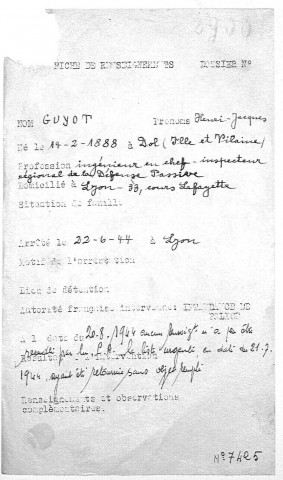 FICHE DE RENSEIGNEMENTS DOSSIER N°
NOM GUYOT Prénoms Henri-Jacques
Né le 14-2-1888 à Dol (Ille et Vilaine)
Profession ingénieur en chef - inspecteur
régional de la Défense Passive
Domicilié à Lyon - 33, cours Lafayette
Situation de famille
Arrêté le 22-6-44 à Lyon
Motif de l'arrestation
Lieu de détention
Autorité française intervenue: INTENDANCE DE
POLICE
A la date du 20.8.1944 aucun renseigt n'a pu être
recueilli par la liste urgente en date du 21.7.
Résultats intervention
1944 ayant été retournée sans objet rempli
Renseignements et observations
complémentaires.
N° 7425